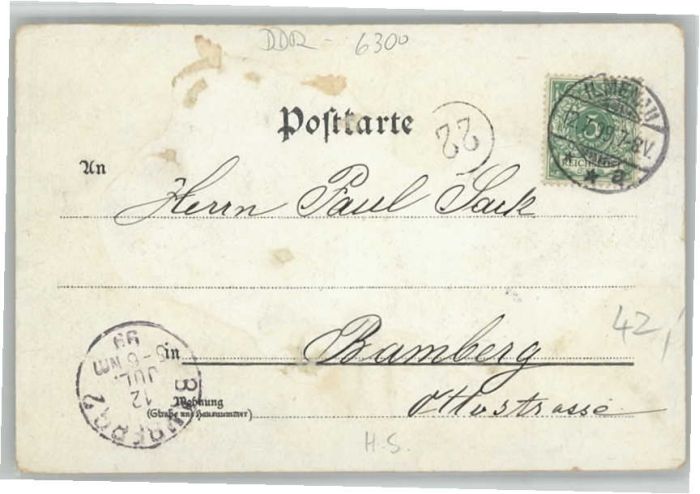 DDR - 6300
Postkarte
22
ILMENAU
12.7.99.7-8V.
* a
5
REICHSPOST
An
Herrn Paul Sack
42,
in Bamberg
Wohnung
(Straße und Hausnummer)
Ottostrasse
BAMBERG 2
12
JUL.
5-6 NM
99
H.S.